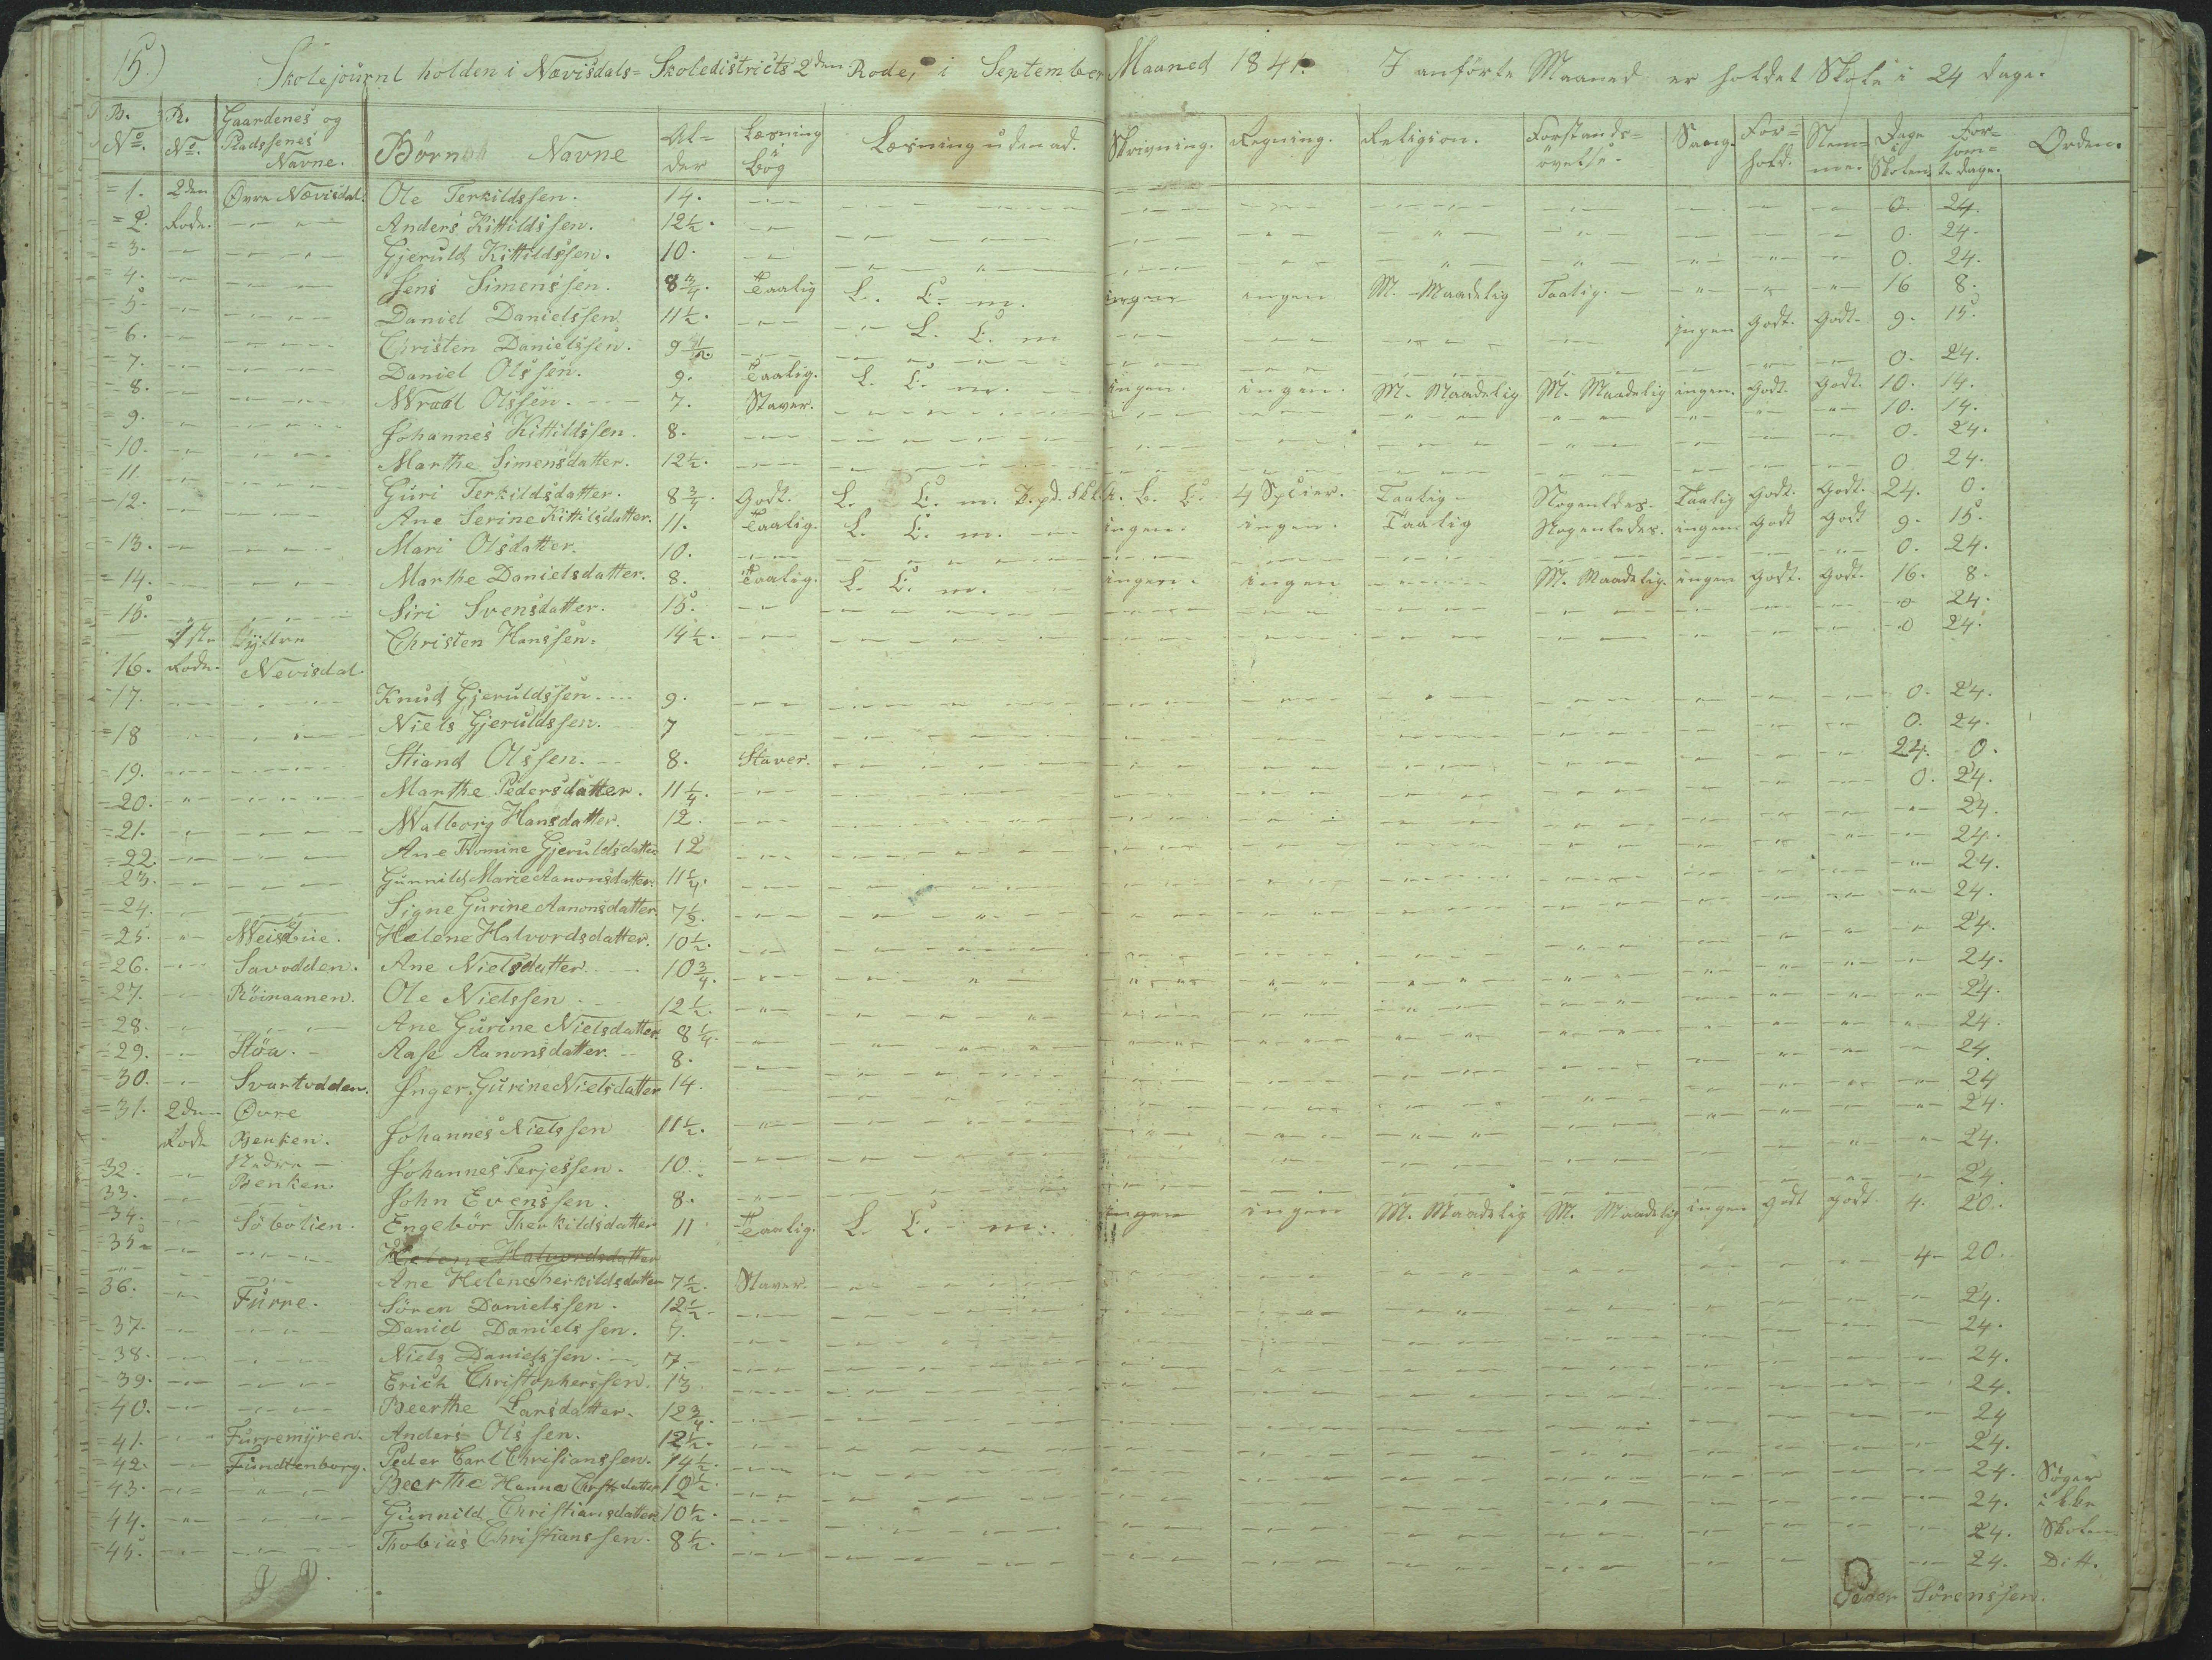 15.)
Skolejournl holden i Nævisdals= Skoledistricts 2den Rode, i September Maaned 1841. I anförte Maaned er holdet Skole i 24 dage.
B. No. R. No. Gaardenes og Pladssenes Navne. Börnes Navne Al= der Læsning i Bog Læsning udenad. Skrivning. Regning. Religion. Forstands= övelse. Sang. For= hold. Stem= me. Dage i Skolen. For= söm= te dage. Orden.
1. 2den Rode. Øvre Nævisdal. Ole Terkildssen. 14. 0. 24.
2. Anders Kittildssen. 12½. 0. 24.
3. Gjeruld Kittildssen. 10. 0. 24.
4. Jens Simenssen. 8¾. Taalig L. L. m. ingen ingen M. Maadelig Taalig. 16 8.
5. Daniel Danielssen. 11½. L. L. m ingen Godt. Godt. 9. 15.
6. Christen Danielssen. 9½. 0. 24.
7. Daniel Olssen. 9. Taalig. L. L. m. ingen. ingen. M. Maadelig M. Maadelig ingen. Godt. Godt. 10. 14.
8. Wraal Olssen. 7. Staver. 10. 14.
9. Johannes Kittildssen. 8. 0. 24.
10. Marthe Simensdatter. 12½. 0 24.
11. Guri Terkildsdatter. 8¾. Godt. L. L. m. 4 Spcier. Taalig Nogenledes. Taalig Godt. Godt. 24. 0.
12. Ane Serine Kittilsdatter. 11. Taalig. L. L. m. ingen. ingen. Taalig Nogenledes. ingen Godt Godt 9. 15.
13. Mari Olsdatter. 10. 0. 24.
14. Marthe Danielsdatter. 8. Taalig. L. L. m. ingen. ingen M. Maadelig. ingen Godt. Godt. 16. 8.
15. Siri Svensdatter. 15. 0 24.
16. 1ste Rode. Nevisdal. Christen Hanssen. 14½. 0 24.
17. Knud Gjeruldssen. 9. 0. 24.
18 Niels Gjeruldssen. 7 0. 24.
19. Stiand Olssen. 8. Staver. 24. 0.
20. Marthe Pedersdatter. 11¼. 0. 24.
21. Walborg Hansdatter. 12. 24.
22. Ane Thomine Gjeruldsdatter 12 24.
23. Gunnild Marie Aanonsdatter. 11¼. 24.
24. Signe Gurine Aanonsdatter. 7½. 24.
25. Helene Halvordsdatter. 10½. 24.
26. Savodden. Ane Nielsdatter. 10¾. 24.
27. Röinaanen. Ole Nielssen 12½. 24.
28. Ane Gurine Nielsdatter 8¼. 24.
29. Stöa. Aase Aanonsdatter. 8. 24.
30. Svartodden. Inger Gurine Nielsdatter 14. 24
31. 2den Rode Øvre Benken. Johannes Nielssen 11½. 24.
32. Nedre Benken. Johannes Terjessen. 10. 24.
33. John Evenssen. 8. 24.
34. Söbolien. Engebör Therkildsdatter 11 Taalig. L. L. m. ingen ingen M. Maadelig M. Maadelig ingen godt godt. 4. 20.
35. Helene Halvordsdatter
Ane Helene Therkildsdatter 7½. Staver. 4 20.
36. Furre. Sören Danielssen. 12½. 24.
37. Daniel Danielssen. 7. 24.
38. Niels Danielssen. 7. 24.
39. Erich Christopherssen. 13. 24.
40. Beerthe Larsdatter. 12¾. 24
41. Furremyren. Anders Olssen. 12½. 24.
42. Fundtenborg. Peder Carl Chrisianssen. 14½. 24. Søger
43. Beerthe Hanna Christsdatter 12½. 24. ikke
44. Gunnild Christiansdatter 10½. 24. Skolen
45. Thobias Christianssen. 8½. 24. Ditt.
Peder Sörenssen.